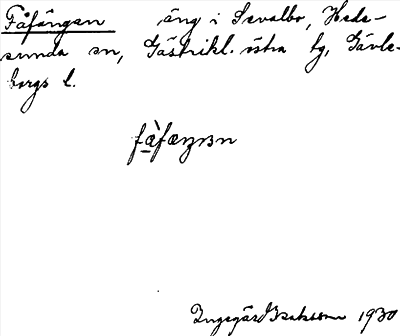 Fåfängan äng i Sevalbo, Hede-
sunda sn, Gästrikl. östra tg, Gävle-
borgs l.
fæ̀fæŋɜn
Ingegärd Isaksson 1930